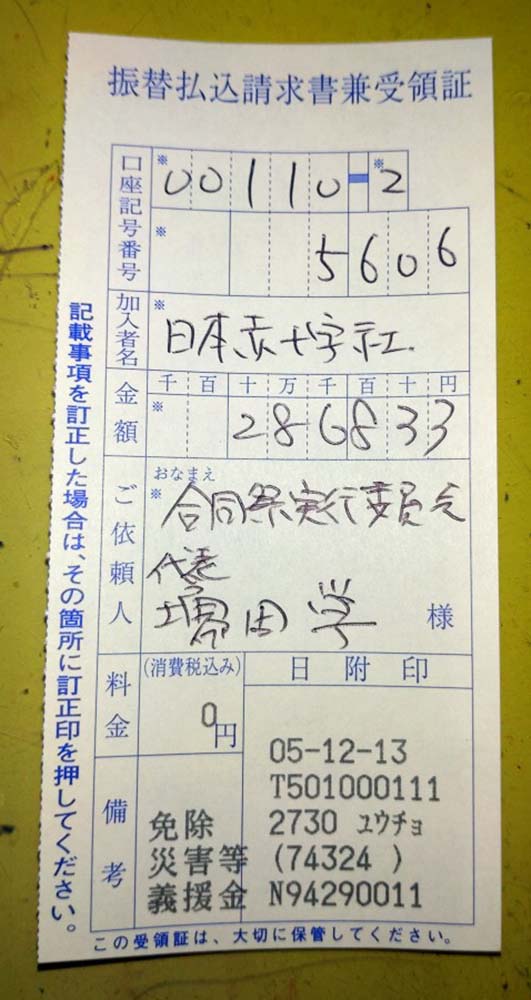 振替払込請求書兼受領証
口座記号番号
※
00110-2
※
5606
加入者名
※
日本赤十字社
金額
千百十万千百十円
※
286833
ご依頼人
おなまえ
※
合同祭実行委員会
代表
増田学
様
料金
(消費税込み)
0円
日附印
05-12-13
T501000111
2730 ユウチョ
(74324 )
N94290011
備考
免除
災害等
義援金
記載事項を訂正した場合は、その箇所に訂正印を押してください。
この受領証は、大切に保管してください。